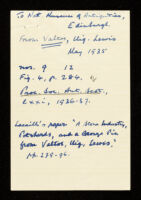 To Nat. Museum of Antiquities,
Edinburgh.
From Valtos, Uig, Lewis
May 1935
nos. 9 12
Fig. 4, p. 284.
Proc. Soc. Ant. Scot.,
lxxi, 1936-37.
paper "A Stone Industry,
Potsherds, and a Bronze Pin
from Valtos, Uig, Lewis,"
pp. 279-96.